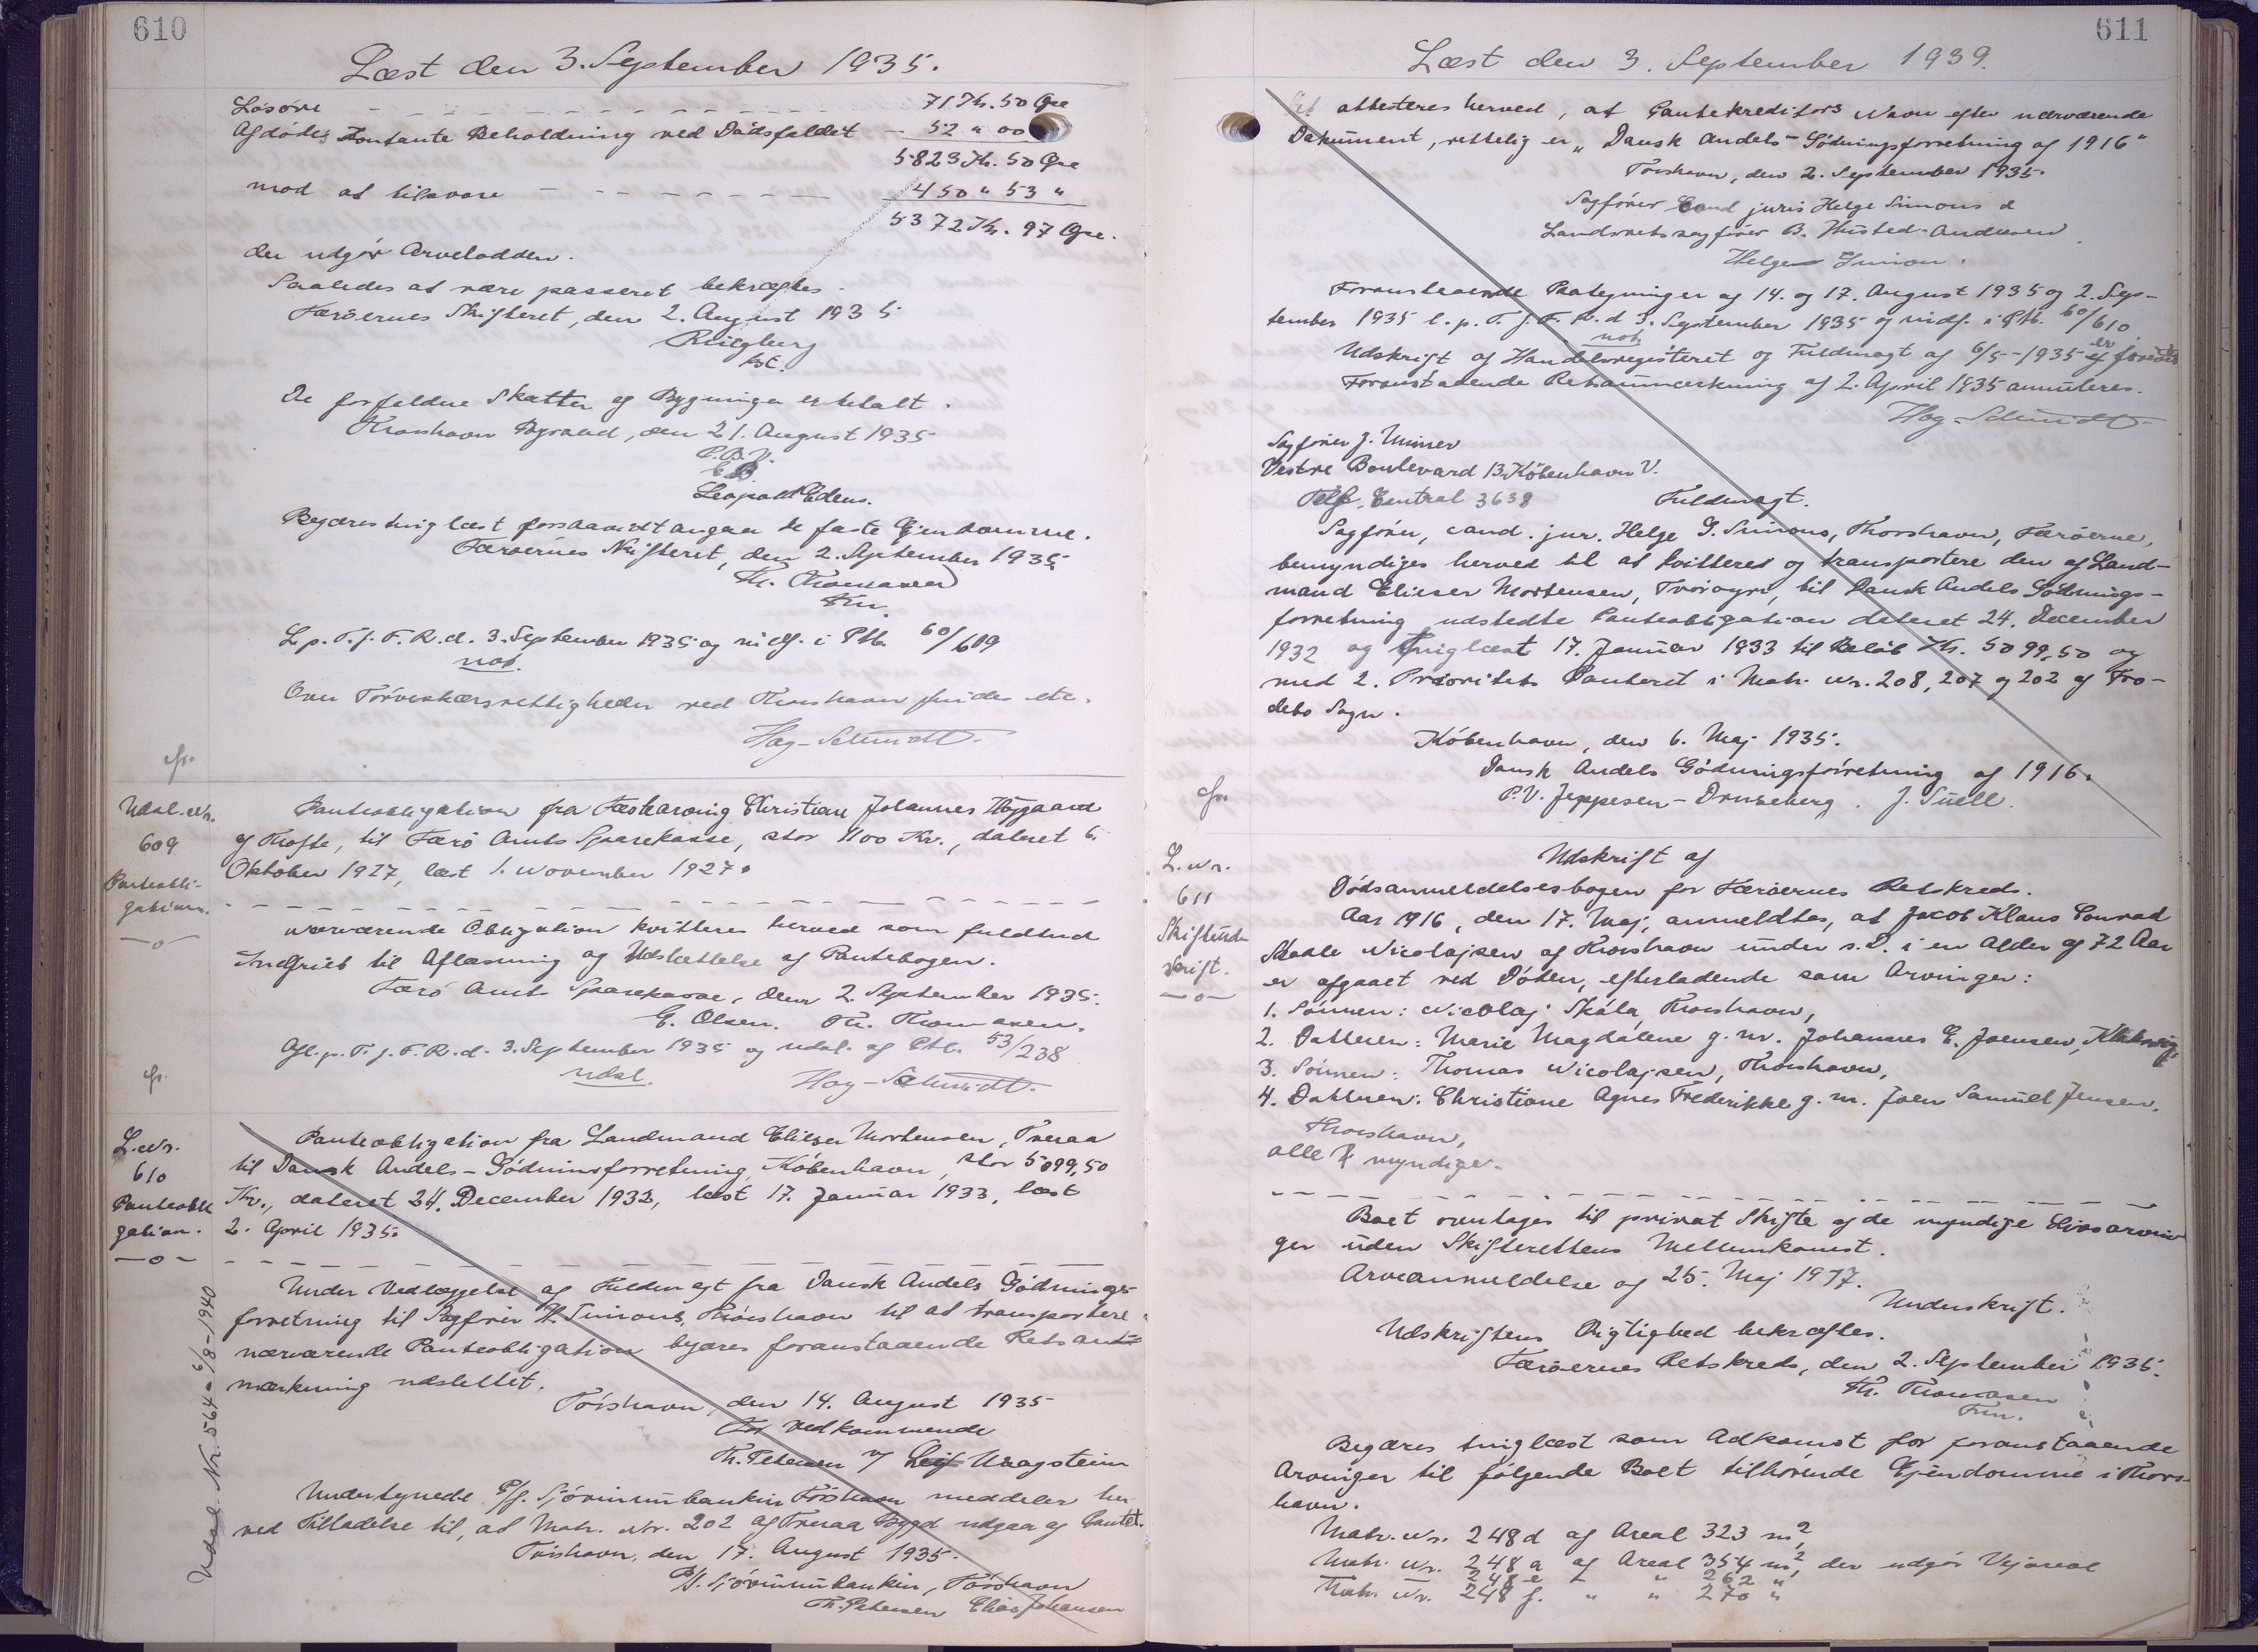 610
Læst den 3. September 1935.
Løsøre - - - - - - - - - - - - 71 Kr. 50 Øre
Afdødes kontante Beholdning ved Dødsfaldet - 52 " 00
5823 Kr. 50 Øre
mod at tilsvare - - - - - - - - 450 " 53 "
5372 Kr. 97 Øre.
der udgør Arvelodden.
Saaledes at være passeret bekræftes.
Færøernes Skifteret, den 2. August 1935
kst.
De forfaldne Skatter og Bygninger er betalt.
Thorshavn Byraad, den 21. August 1935
P.B.V.
E.B.
Leopold Edens.
Begæres tinglæst forsaavidt angaar de faste Ejendomme.
Færøernes Skifteret, den 2. September 1935
Th. Thomassen
Fm.
L. p. T. f. F. R. d. 3. September 1935 og indf. i Ptb. 60/609
not.
Over Tørveskærsrettigheder ved Thorshavn findes etc.
Hag-Schmidt.
cfr.
Udsl. Nr.
609
Panteobli-
gation.
—o—
Panteobligation fra Færkarving Christian Johannes Højgaard
af Tofte, til Færø Amts Sparekasse, stor 1100 Kr., dateret 6.
Oktober 1927, læst 1. November 1927.
Nærværende Obligation kvitteres herved som fuldtud
indfriet til Aflæsning og Udslettelse af Pantebogen.
Færø Amts Sparekasse, den 2. September 1935.
E. Olsen. Th. Thomassen.
Afl. p. T. f. F. R. d. 3. September 1935 og udsl. af Ptb. 53/238
udsl.
Hag-Schmidt.
cfr.
L. Nr.
610
Panteobli
gation.
—o—
Panteobligation fra Landmand Elieser Mortensen, Tveraa
til Dansk Andels-Gødninsforretning, København, stor 5099,50
Kr., dateret 24. December 1932, læst 17. Januar 1933, læst
2. April 1935.
Under Vedlæggelse af Fuldmagt fra Dansk Andels Gødnings-
forretning til Sagfører H. Simons, Thorshavn til at transportere
nærværende Panteobligation begæres foranstaaende Retsan-
mærkning udslettet.
Tórshavn, den 14. August 1935
For Vedkommende
Th. Petersen v/ Leif Waagstein
Undertegnede P/f. Sjóvinnubankin Tórshavn meddeler her-
ved Tilladelse til, at Matr. Nr. 202 af Tveraa Bygd udgaar af Pantet.
Tórshavn, den 17. August 1935.
P/f. Sjóvinnubankin, Tórshavn
Th. Petersen Elias Johansen
Udsl. Nr. 564 - 6/8-1940
611
Læst den 3. September 1939.
Det attesteres herved, at Pantekreditors Navn efter nærværende
Dokument, rettelig er "Dansk Andels-Gødningsforretning af 1916"
Tórshavn, den 2. September 1935.
Sagfører Cand juris Helge Simons &
Landsretssagfører B. Husted-Andersen
Helge Simons.
Foranstaaende Paategninger af 14. og 17. August 1935 og 2. Sep-
tember 1935 l. p. T. f. F. R. d 3. September 1935 og indf. i Ptb. 60/610
not.
Udskrift af Handelsregisteret og Fuldmagt af 6/5-1935 er forevist
Foranstaaende Retsanmærkning af 2. April 1935 annulleres.
Hag-Schmidt.
Sagfører J.
Vestre Boulevard 13, København V.
Telf. Central 3638
Fuldmagt.
Sagfører, cand. jur. Helge G. Simons, Thorshavn, Færøerne,
bemyndiges herved til at kvittere og transportere den af Land-
mand Elieser Mortensen, Tvøroyri, til Dansk Andels Gødnings-
forretning udstedte Panteobligation dateret 24. December
1932 og tinglæst 17. Januar 1933 til Beløb Kr. 5099,50 og
med 2. Prioritets Panteret i Matr. Nr. 208, 207 og 202 af Fro-
debø Sogn.
København, den 6. Maj 1935.
Dansk Andels Gødningsforretning af 1916.
P.V. Jeppesen-Drusebjerg. J. Suell.
cfr.
L. Nr.
611
Skifteud-
skrift.
—o—
Udskrift af
Dødsanmeldelsesbogen for Færøernes Retskreds.
Aar 1916, den 17. Maj, anmeldtes, at Jacob Klaus Conrad
Skaale Nicolajsen af Thorshavn under s.D. i en Alder af 72 Aar
er afgaaet ved Døden, efterladende som Arvinger:
1. Sønnen: Nicolaj Skála, Thorshavn,
2. Datteren: Marie Magdalene g. m. Johannes E. Joensen, Klaksvig,
3. Sønnen: Thomas Nicolajsen, Thorshavn,
4. Datteren: Christiane Agnes Frederikke g. m. Joen Samuel Jensen,
Thorshavn,
alle 4 myndige.
Boet overtages til privat Skifte af de myndige Livsarvin-
ger uden Skifterettens Mellemkomst.
Arveanmeldelse af 25. Maj 1917.
Underskrift.
Udskriftens Rigtighed bekræftes.
Færøernes Retskreds, den 2. September 1935.
Th. Thomassen
Fm.
Begæres tinglæst som Adkomst for foranstaaende
Arvinger til følgende Boet tilhørende Ejendomme i Thors-
havn.
Matr. Nr. 248d af Areal 323 m²,
Matr. Nr. 248a af Areal 354 m², der udgør Vejareal
248e " " 262 "
Matr. Nr. 248f. " " 270 "